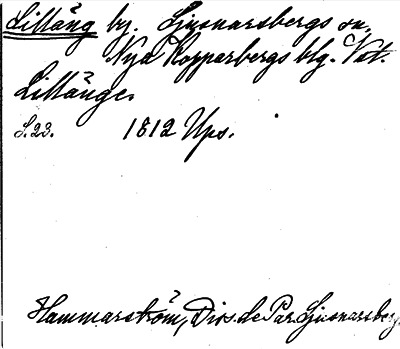 Lilläng by. Ljusnarsbergs sn,
Nya Kopparbergs blg. Vst.
Lillänge.
S. 23. 1812 Ups.
Hammarström, Diss. de Par. Ljusnarsberg.